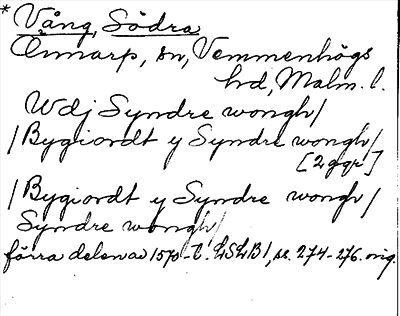 * Vång, Södra
Önnarp, sn, Vemmenhögs
hd, Malm. l.
Wdj Syndre wongh/
/Bygiordt y Syndre wongh/
[2 ggr]
/Bygiordt y Syndre wongh/
Syndre wongh/
förra delen av 1570-t. LSLB1, s. 274-276. orig.